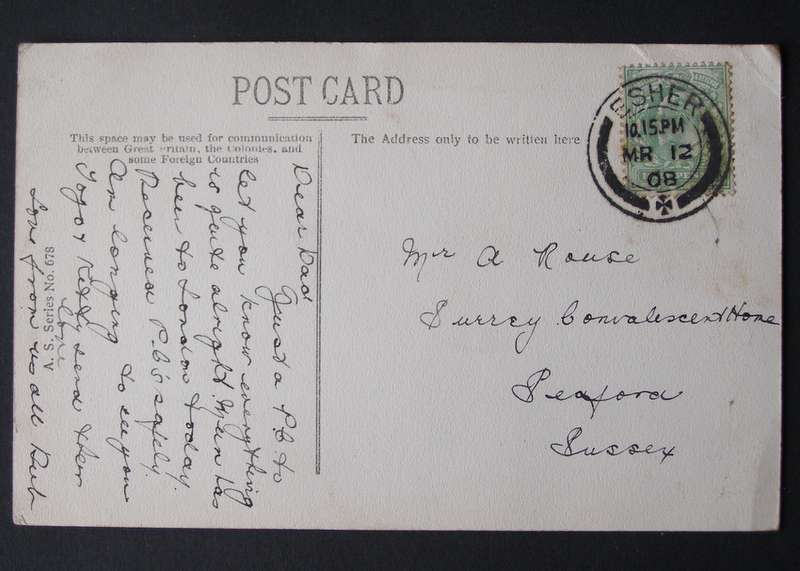 POST CARD
This space may be used for communication
between Great Britain, the Colonies, and
some Foreign Countries
The Address only to be written here
ESHER
10.15.PM
MR 12
08
Mr A Rouse
Surrey Convalescent Home
Seaford
Sussex
Dear Dad
Just a P.C to
let you know everything
is quite alright Mum has
been to London today.
Received P.C's safely.
Am longing to see you
Togo & Kitty send their
love
Love from us all
A. S. Series No. 678